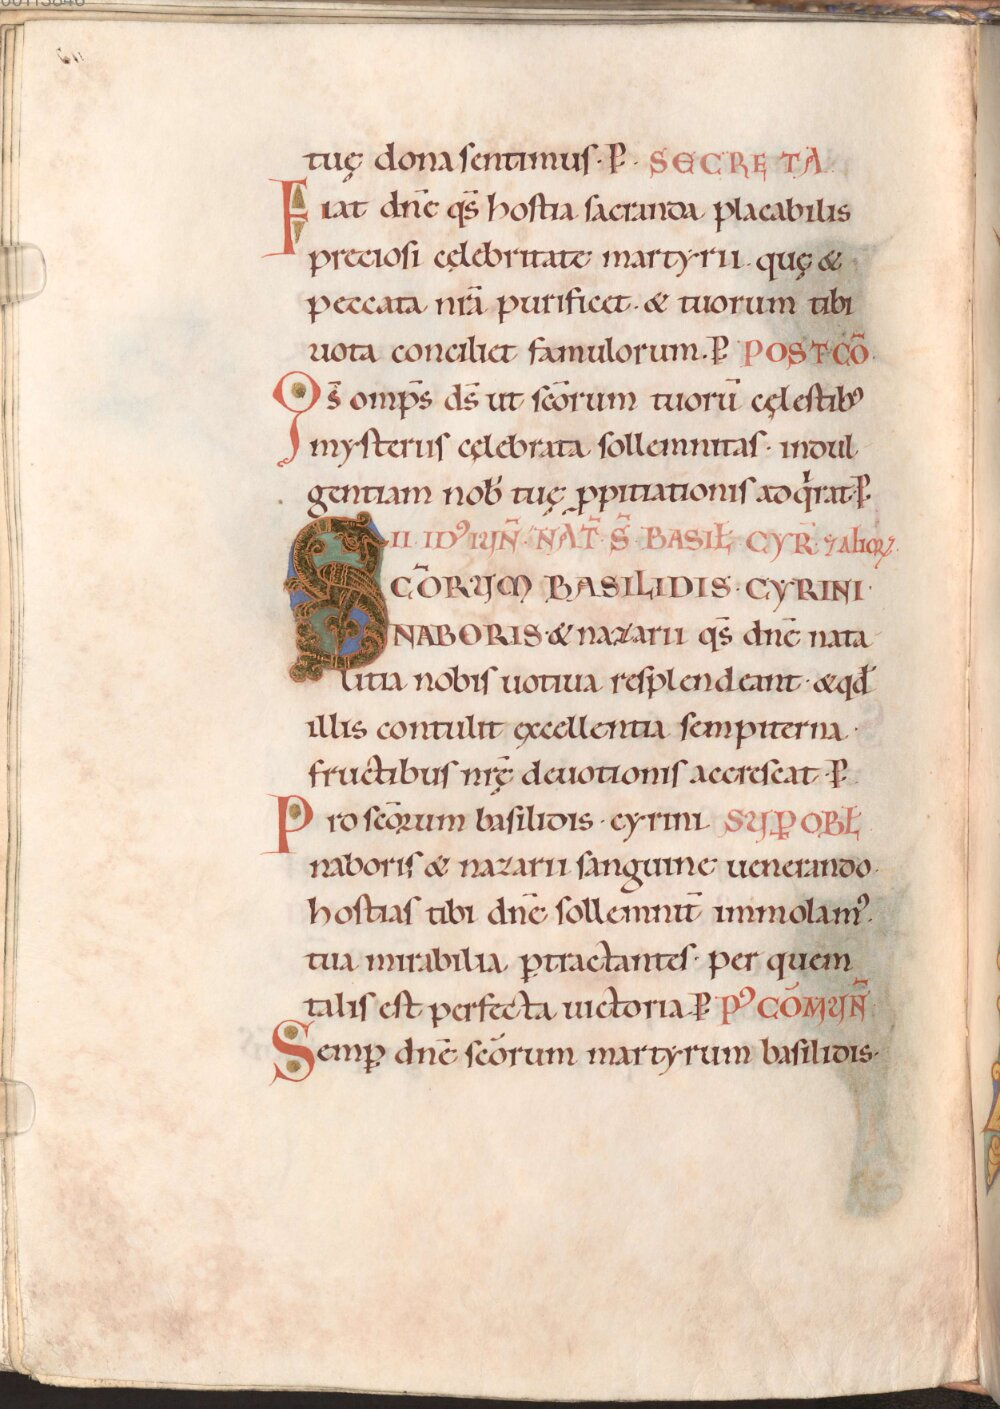 tuę dona sentimus · P̄ · SECRETA
Fiat dn̄e qs̄ hostia sacranda placabilis
preciosi cęlebritate martyrii · quę &
peccata nr̄a purificet · & tuorum tibi
uota conciliet famulorum · P̄ POST CŌ
Qs̄ omps̄ ds̄ ut scōrum tuorū cęlestibꝰ
mysteriis cęlebrata sollemnitas · indul
gentiam nob̄ tuę ꝓpitiationis adq̇rat P̄
II · IDꝰ IUÑ · NAT̄ · S̄ · BASIŁ CYR̄ · & alioꝝ
SCŌRUM BASILIDIS · CYRINI ·
NABORIS · & nazarii qs̄ dn̄e nata
litia nobis uotiua resplendeant · & qd̄
illis contulit excellentia sempiterna ·
fructibus nr̄ę deuotionis accrescat · P̄
Pro scōꝝum basilidis · cyrini SUP OBŁ
naboris & nazarii sanguine uenerando ·
hostias tibi dn̄e sollemnit̄ immolamꝰ ·
tua mirabilia ꝑtractantes · per quem
talis est perfecta uictoria · P̄ Pꝰ CŌMUÑ
Semꝑ dn̄e scōrum martyrum basilidis ·